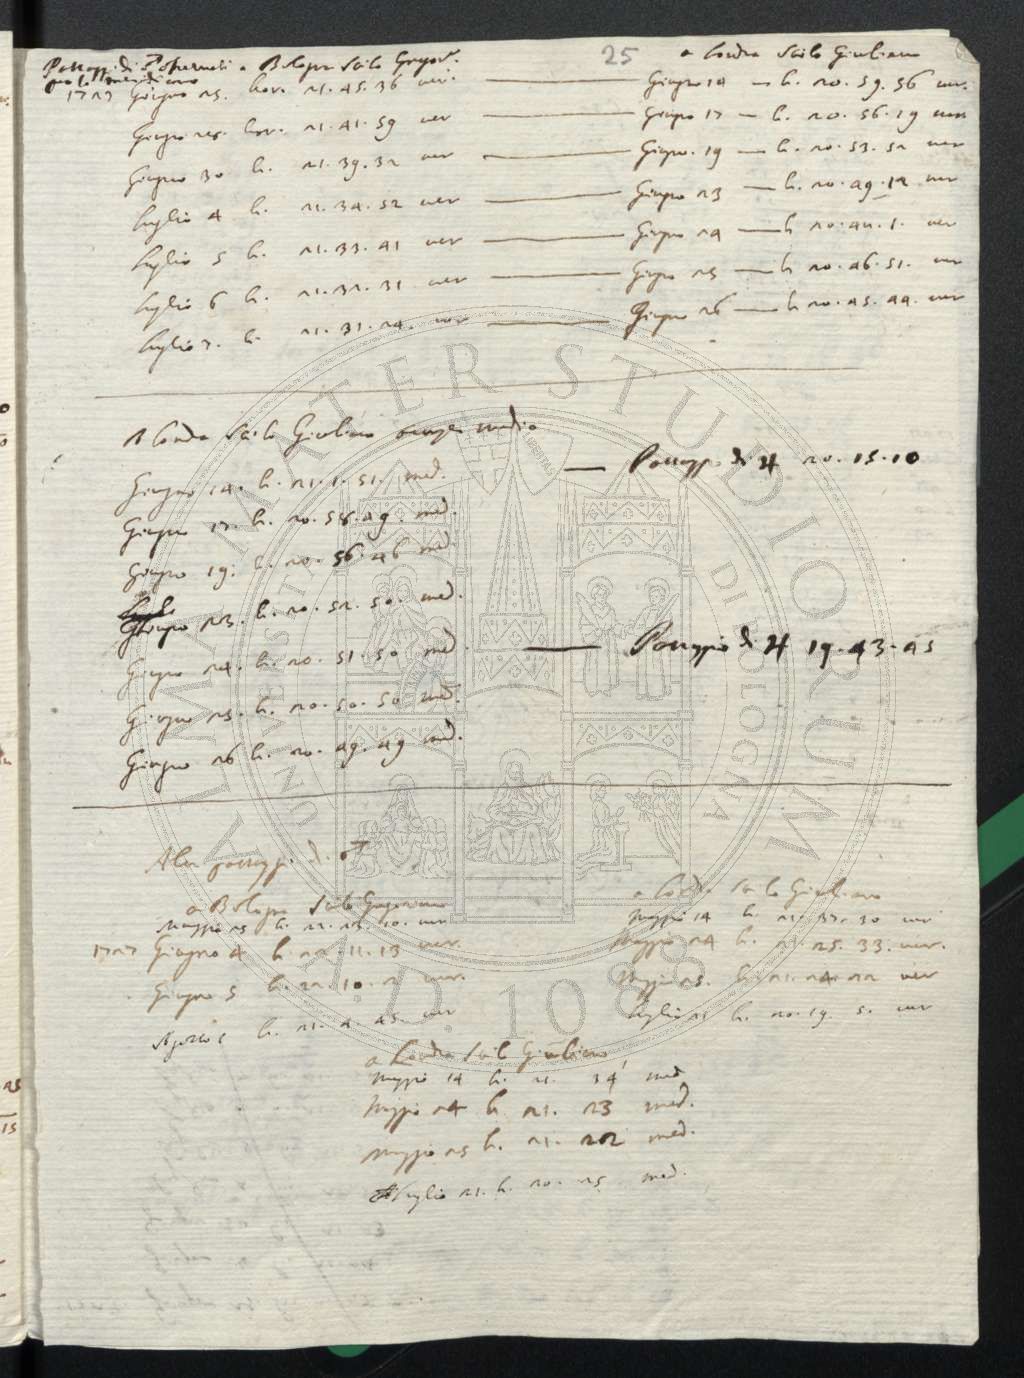 25
Passaggi di a Bologna Stilo Gregor.
per lo meridiano
a Londra Stilo Giuliano
1727 Giugno 25. hor. 21. 45. 36 ver. — Giugno 14 — h. 20. 59. 56 ver.
Giugno 28. hor. 21. 41. 59 ver — Giugno 17 — h. 20. 56. 19 ver
Giugno 30 h. 21. 39. 32 ver — Giugno. 19 — h. 20. 53. 52 ver
luglio 4 h. 21. 34. 52 ver — Giugno 23 — h. 20. 49. 12 ver
luglio 5 h. 21. 33. 41 ver — Giugno 24 — h 20. 1. ver
luglio 6 h. 21. 32. 31 ver — Giugno 25 — h 20. 46. 51. ver
luglio 7. h. 21. 31. 24. ver — Giugno 26 — h 20. 45. 44. ver
A Londra Stilo Giuliano tempo medio
Giugno 14. h. 21. 1. 51. med. — Passaggio di ♃ 20. 15. 10
Giugno 17. h. 20. 58. 49. med.
Giugno 19. h. 20. 56. 46 med.
Giugno 23. h. 20. 52. 50. med.
Giugno 24. h. 20. 51. 50 med. — Passaggio di ♃ 19. 43. 45
Giugno 25. h. 20. 50. 50 med.
Giugno 26 h. 20. 49. 49 med.
Altri passaggi di
a Bologna Stilo Gregoriano
a Londra Stilo Giuliano
Maggio 25 h. 22. 23. 10. ver
Maggio 14 h. 21. 37. 30 ver
1727 Giugno 4 h. 22. 11. 13 ver.
Maggio 24 h. 21. 25. 33. ver.
Giugno 5 h. 22. 10. 2 ver.
Maggio 25. h. 21. 24. 22 ver
Agosto 1 h. 21. 4. 45. ver
luglio 21 h. 20. 19. 5. ver
a Londra Stilo Giuliano
Maggio 14 h. 21. 34 med
Maggio 24 h. 21. 23 med.
Maggio 25 h. 21. 22 med.
luglio 21. h. 20. 25 med.
ALMA MATER STUDIORUM
UNIVERSITÀ DI BOLOGNA
A.D. 1088